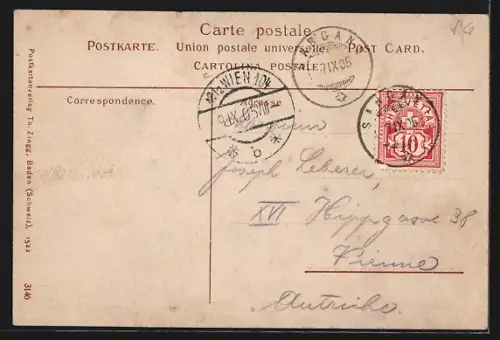 Carte postale.
POSTKARTE. Union postale universelle. POST CARD.
CARTOLINA POSTALE.
Correspondence.
Adresse
WIEN
9.IX.05
* b *
7 IX 05
HELVETIA
10
Joseph
XVI Hippgasse 38
Vienne
Autriche
Postkartenverlag Th. Zingg, Baden (Schweiz), 1522
3146